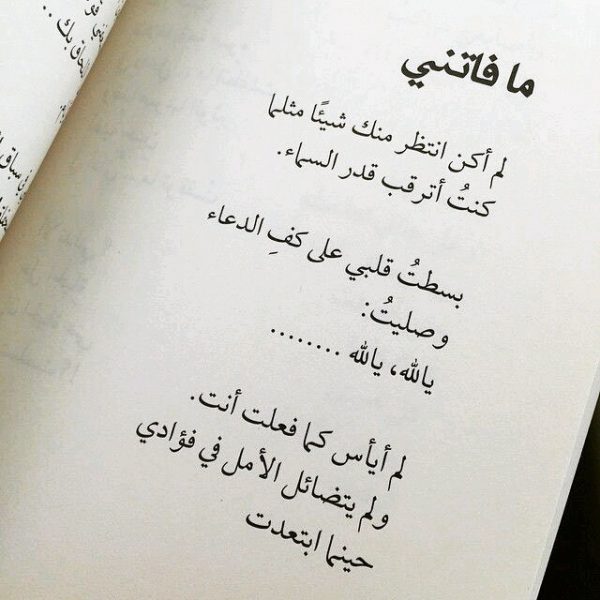 ما فاتني
لم أكن انتظر منك شيئًا مثلما
كنتُ أترقب قدر السماء.
بسطتُ قلبي على كفِ الدعاء
وصليتُ:
يالله، يالله ........
لم أيأس كما فعلت أنت.
ولم يتضائل الأمل في فؤادي
حينما ابتعدت